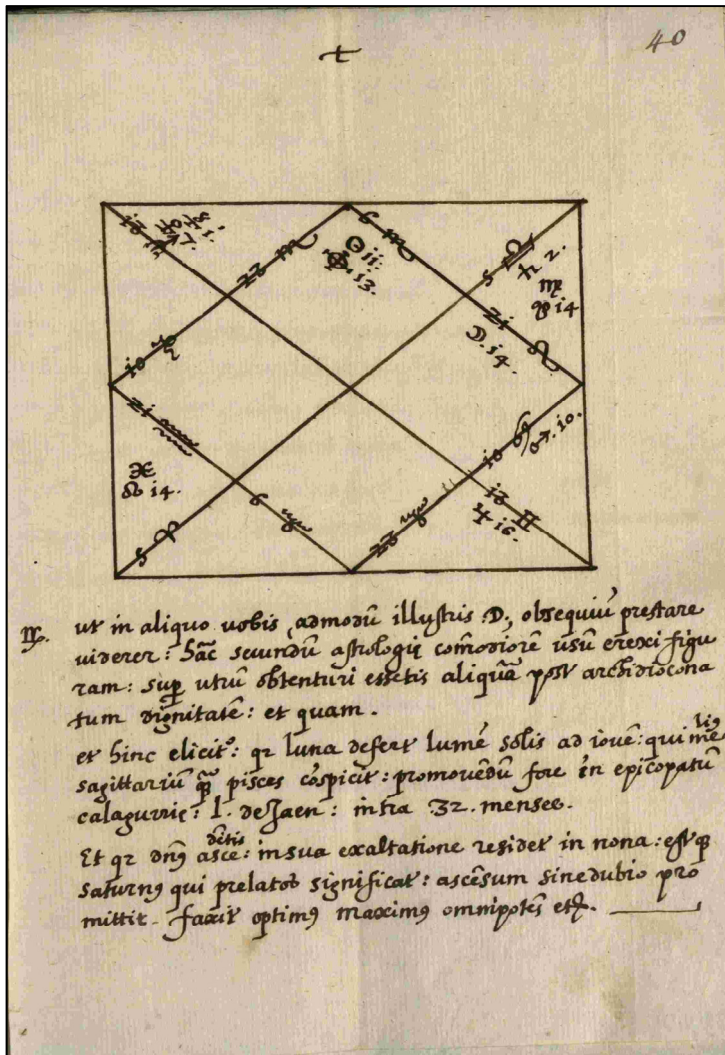 40
22 ♏
☉ 11.
13.
6 ♏
5 ♎
♄ 2.
♍
14
21 ♌
☽. 14.
10 ♑
21 ♒
♓
☊ 14.
5 ♈
6 ♉
22 ♉
10 ♋
♂. 10.
12 ♊
♃ 16.
ut in aliquo uobis, admodū illustris .D., obsequiū prestare
uiderer: hāc secundū astrologię com̄odiorē usū erexi figu
ram: sup̱ utrū obtenturi essetis aliquā post archidiacona
tum dignitatē: et quam.
et hinc elicit᷑: qꝛ luna defert lumē solis ad iouē: qui meliꝰ
sagittariū qꝫ pisces cōspicit: promouēdū fore in epicopatū
calagurriē: l. de Jaen: infra 32. menses.
Et qꝛ dn̄s ascēdētis in sua exaltatione residet in nona: estqꝫ
saturnꝰ qui prelatos significat: ascēsum sinedubio pro
mittit. faxit optimꝰ maximꝰ omnipotēs etc̃.